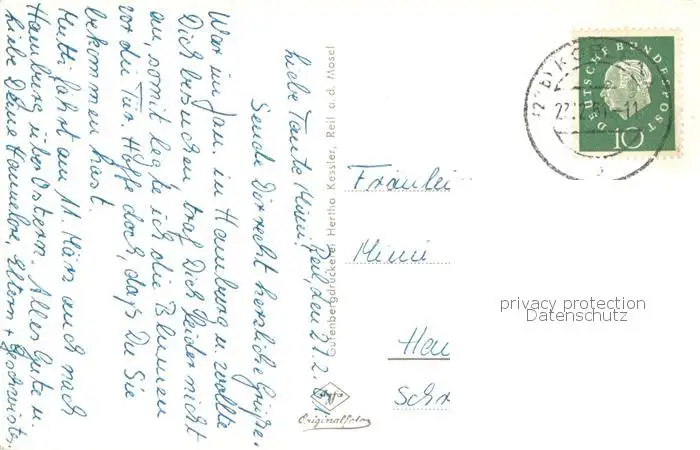 Reil, den 21.2.61
Liebe Tante Mimi!
Sende Dir recht herzliche Grüße.
War im Jan. in Hamburg u. wollte
Dich besuchen, traf Dich leider nicht
an, somit legte ich die Blumen
vor die Tür. Hoffe doch, daß Du sie
bekommen hast.
Mutti fährt am 11. März auch nach
Hamburg über Ostern. Alles Gute u.
Liebe Deine Hannelore, Eltern + Geschwister.
Gutenbergdruckerei Hertha Kessler, Reil a. d. Mosel
Agfa
Originalfoto
DEUTSCHE BUNDESPOST
10
Fräulei
Mimi
Ha
Schr
privacy protection
Datenschutz